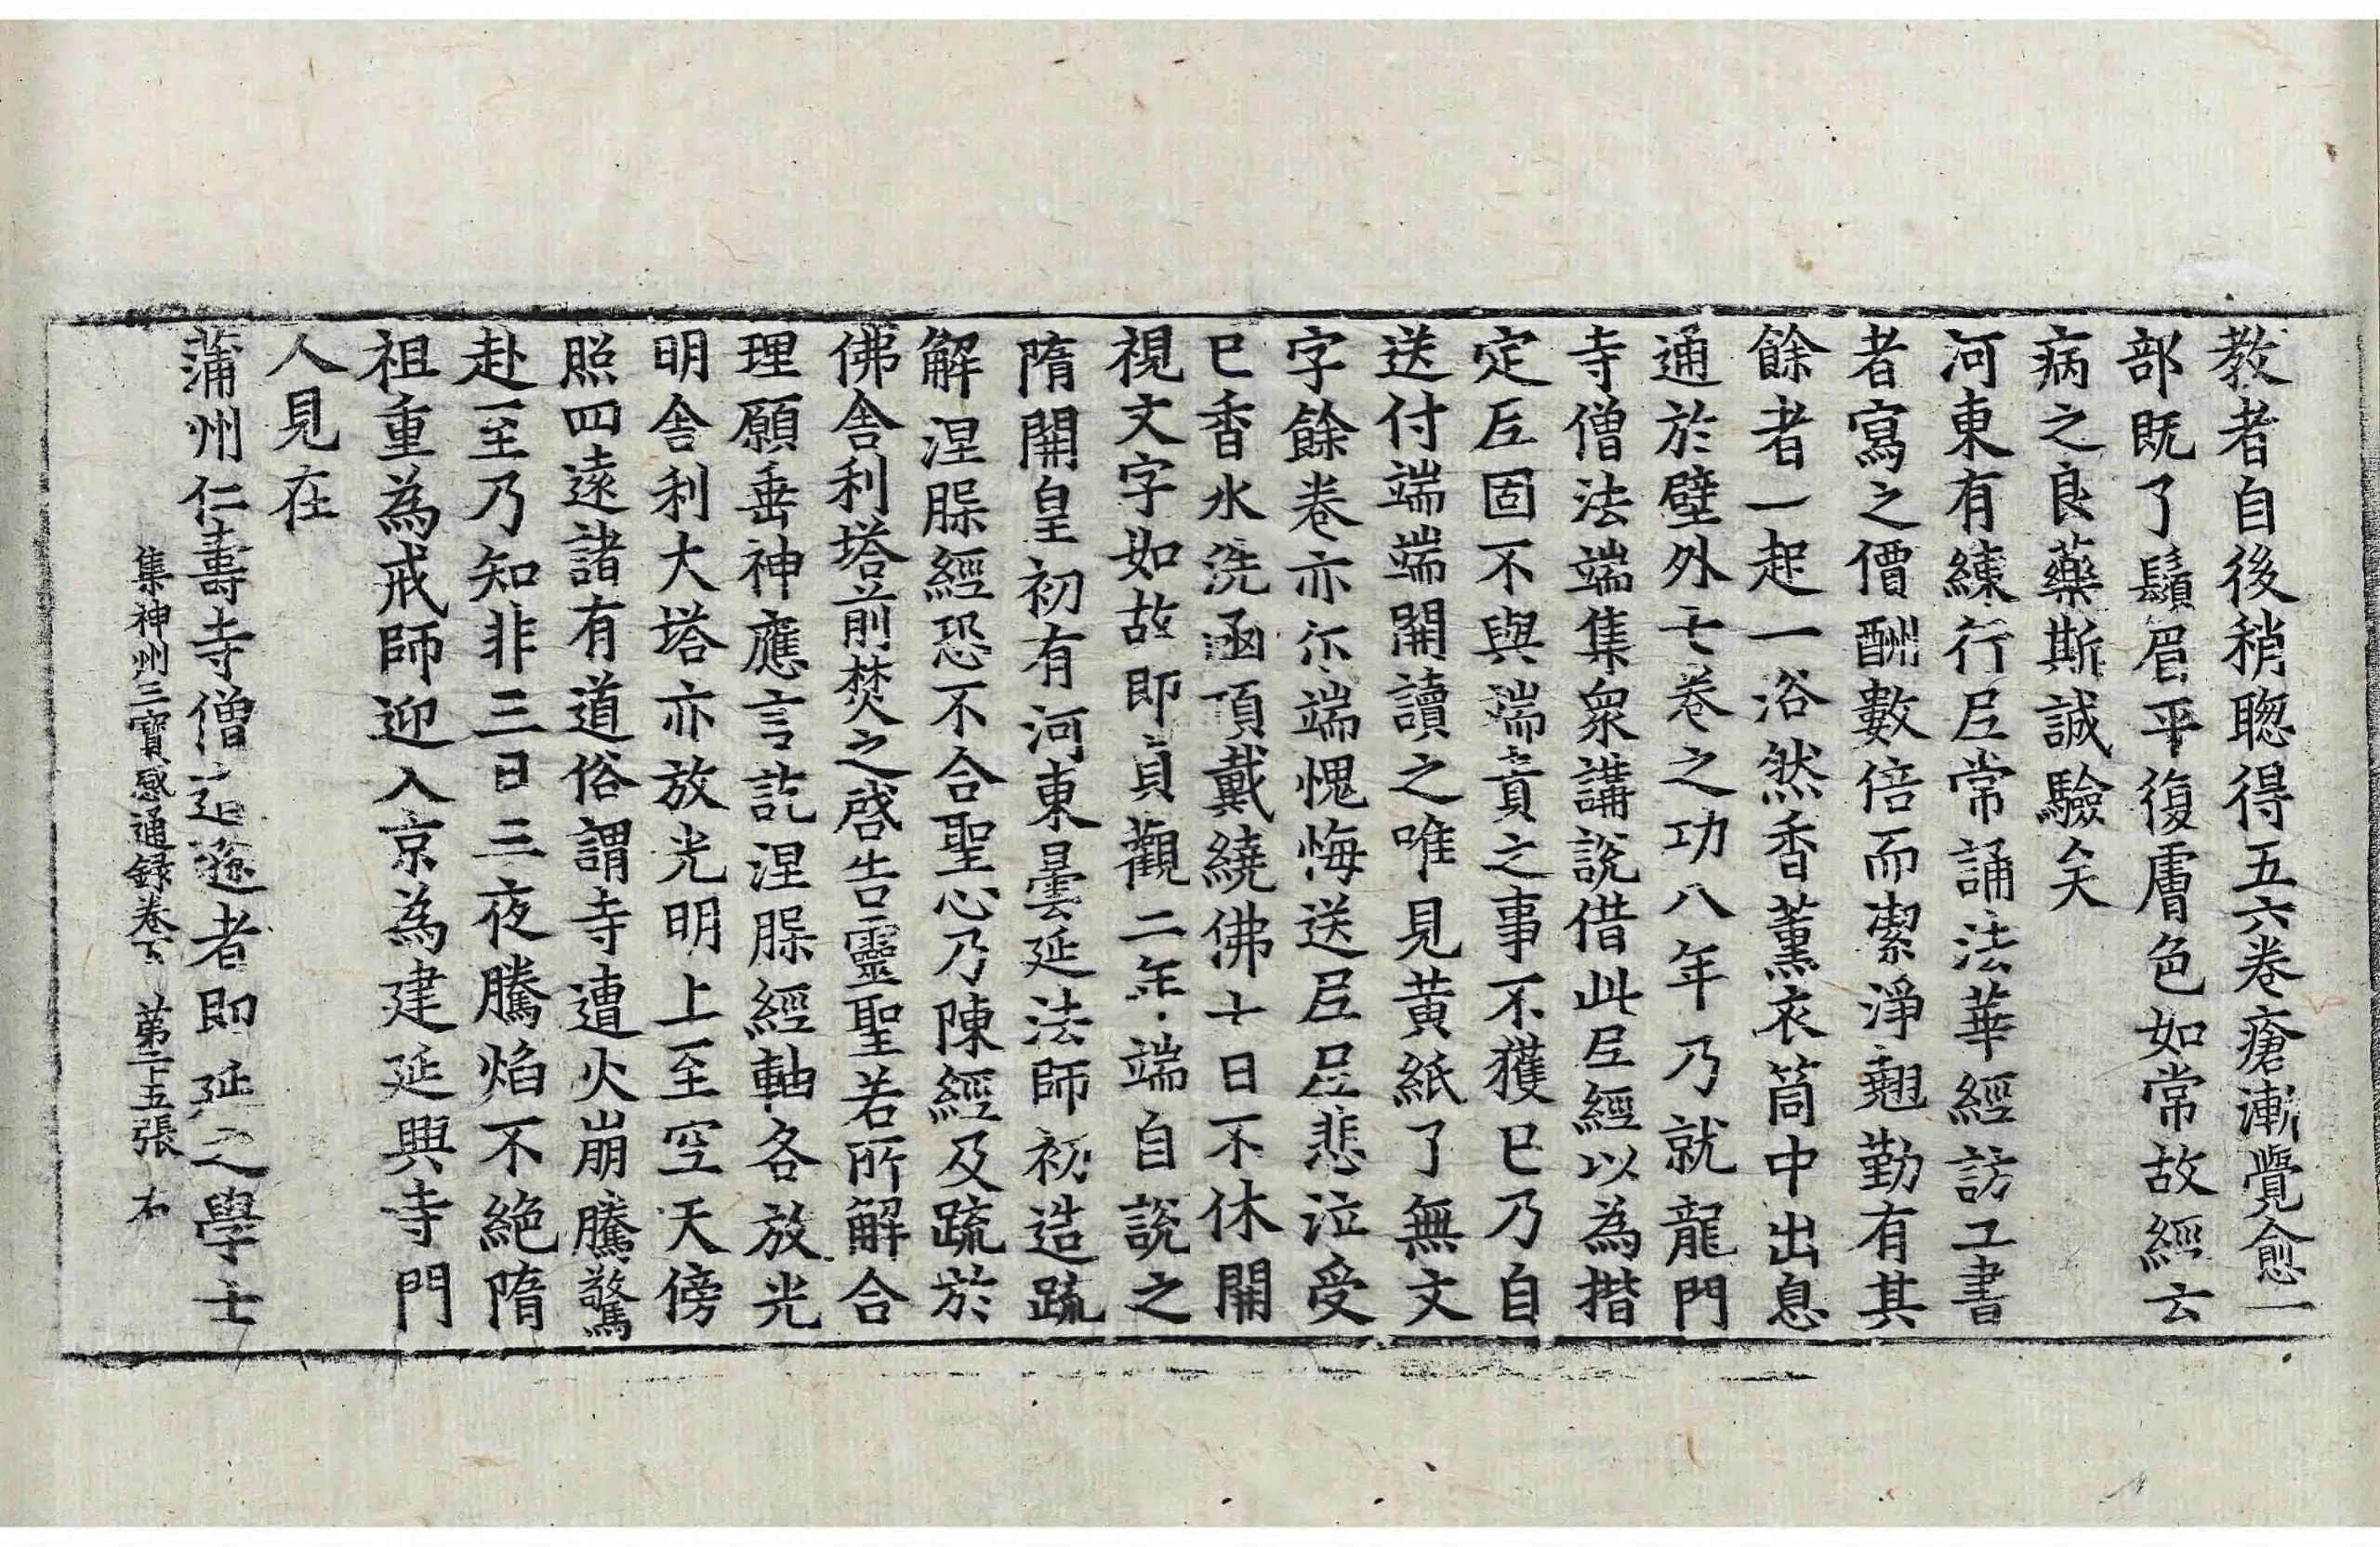 教者自後稍聦得五六卷瘡漸覺愈一
部既了鬚眉平復膚色如常故經云
病之良藥斯誠驗矣
河東有練行尼常誦法華經訪工書
者寫之價酬數倍而潔淨翹勤有其
餘者一起一浴然香薰衣筒中出息
通於壁外七卷之功八年乃就龍門
寺僧法端集衆講說借此尼經以為揩
定尼固不與端責之事不獲已乃自
送付端端開讀之唯見黃紙了無文
字餘卷亦尓端愧悔送尼尼悲泣受
已香水洗函頂戴繞佛七日不休開
視文字如故即貞觀二年端自說之
隋開皇初有河東曇延法師初造䟽
解涅槃經恐不合聖心乃陳經及䟽於
佛舍利塔前焚之啓告靈聖若所解合
理願垂神應言訖涅槃經軸各放光
明舍利大塔亦放光明上至空天傍
照四遠諸有道俗謂寺遭火崩騰驚
赴至乃知非三日三夜騰焰不絶隋
祖重為戒師迎入京為建延興寺門
人見在
蒲州仁壽寺僧道遜者即延之學士
集神州三寶感通録卷下 苐二十五張 右